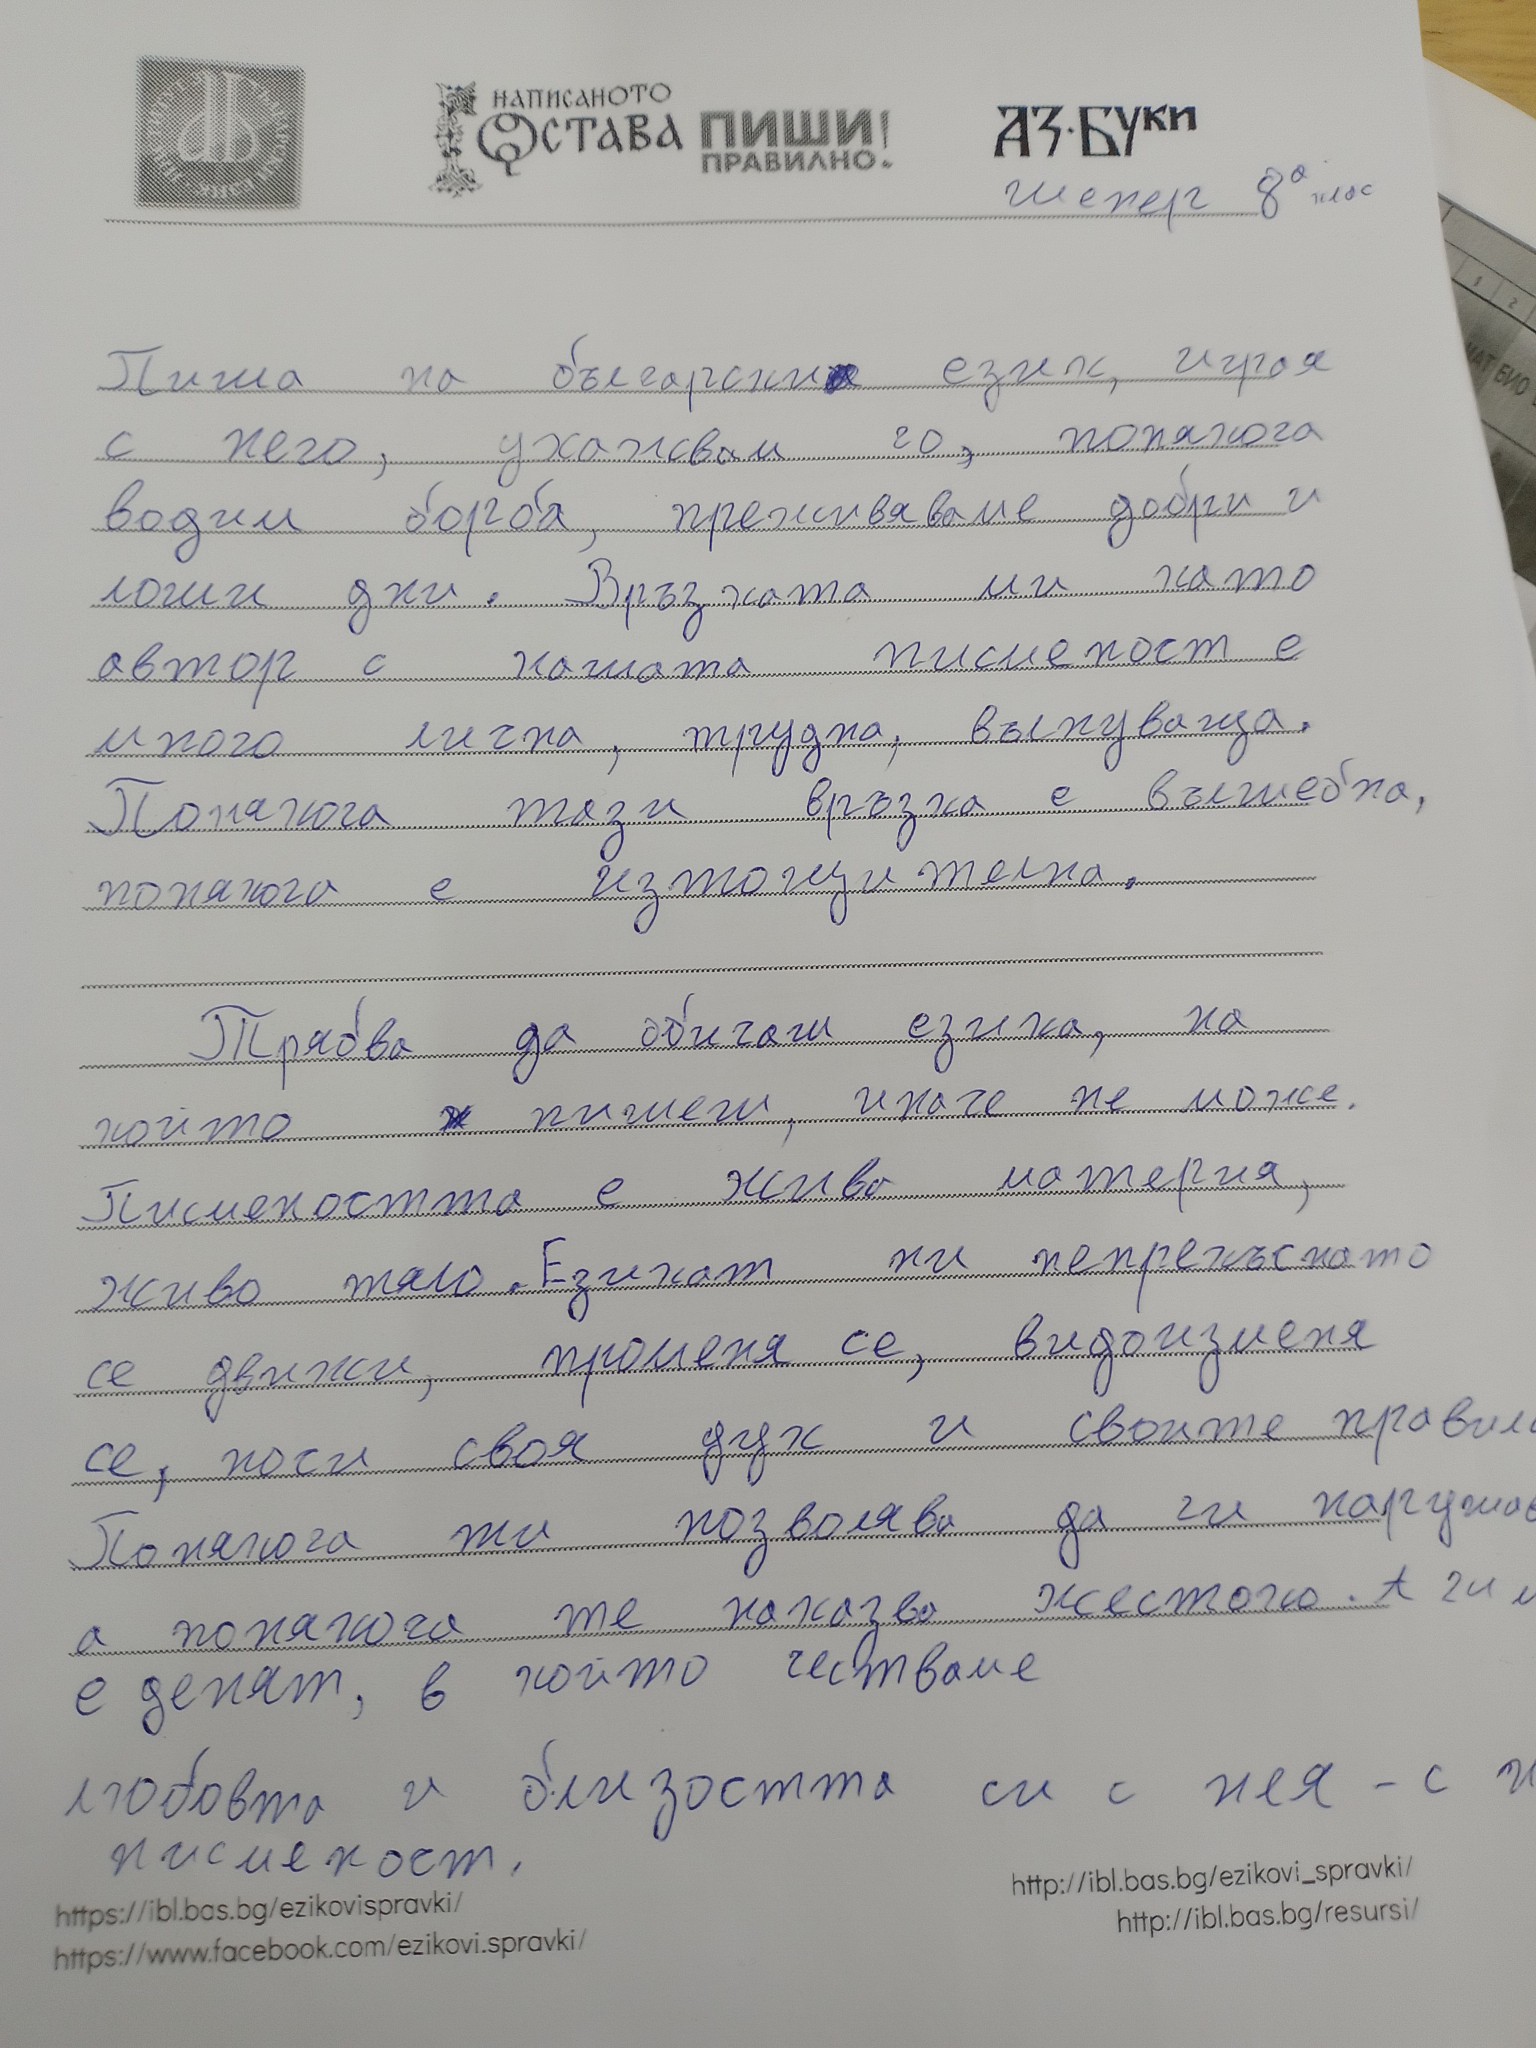 НАПИСАНОТО
ОСТАВА ПИШИ!
ПРАВИЛНО.
АЗ·БУКИ
8а клас
Пиша на български език, играя
с него, ухажвам го, понякога
водим борба, преживяваме добри и
лоши дни. Връзката ми като
автор с нашата писменост е
много лична, трудна, вълнуваща.
Понякога тази връзка е вълшебна,
понякога е изтощителна.
Трябва да обичаш езика, на
който пишеш, иначе не може.
Писмеността е жива материя,
живо тяло. Езикът ни непрекъснато
се движи, променя се, видоизменя
се, носи своя дух и своите правила
Понякога ти позволява да ги нарушав
а понякога те наказва жестоко. А 24 м
е денят, в който честваме
любовта и близостта си с нея - с н
писменост.
https://ibl.bas.bg/ezikovispravki/
https://www.facebook.com/ezikovi.spravki/
http://ibl.bas.bg/ezikovi_spravki/
http://ibl.bas.bg/resursi/